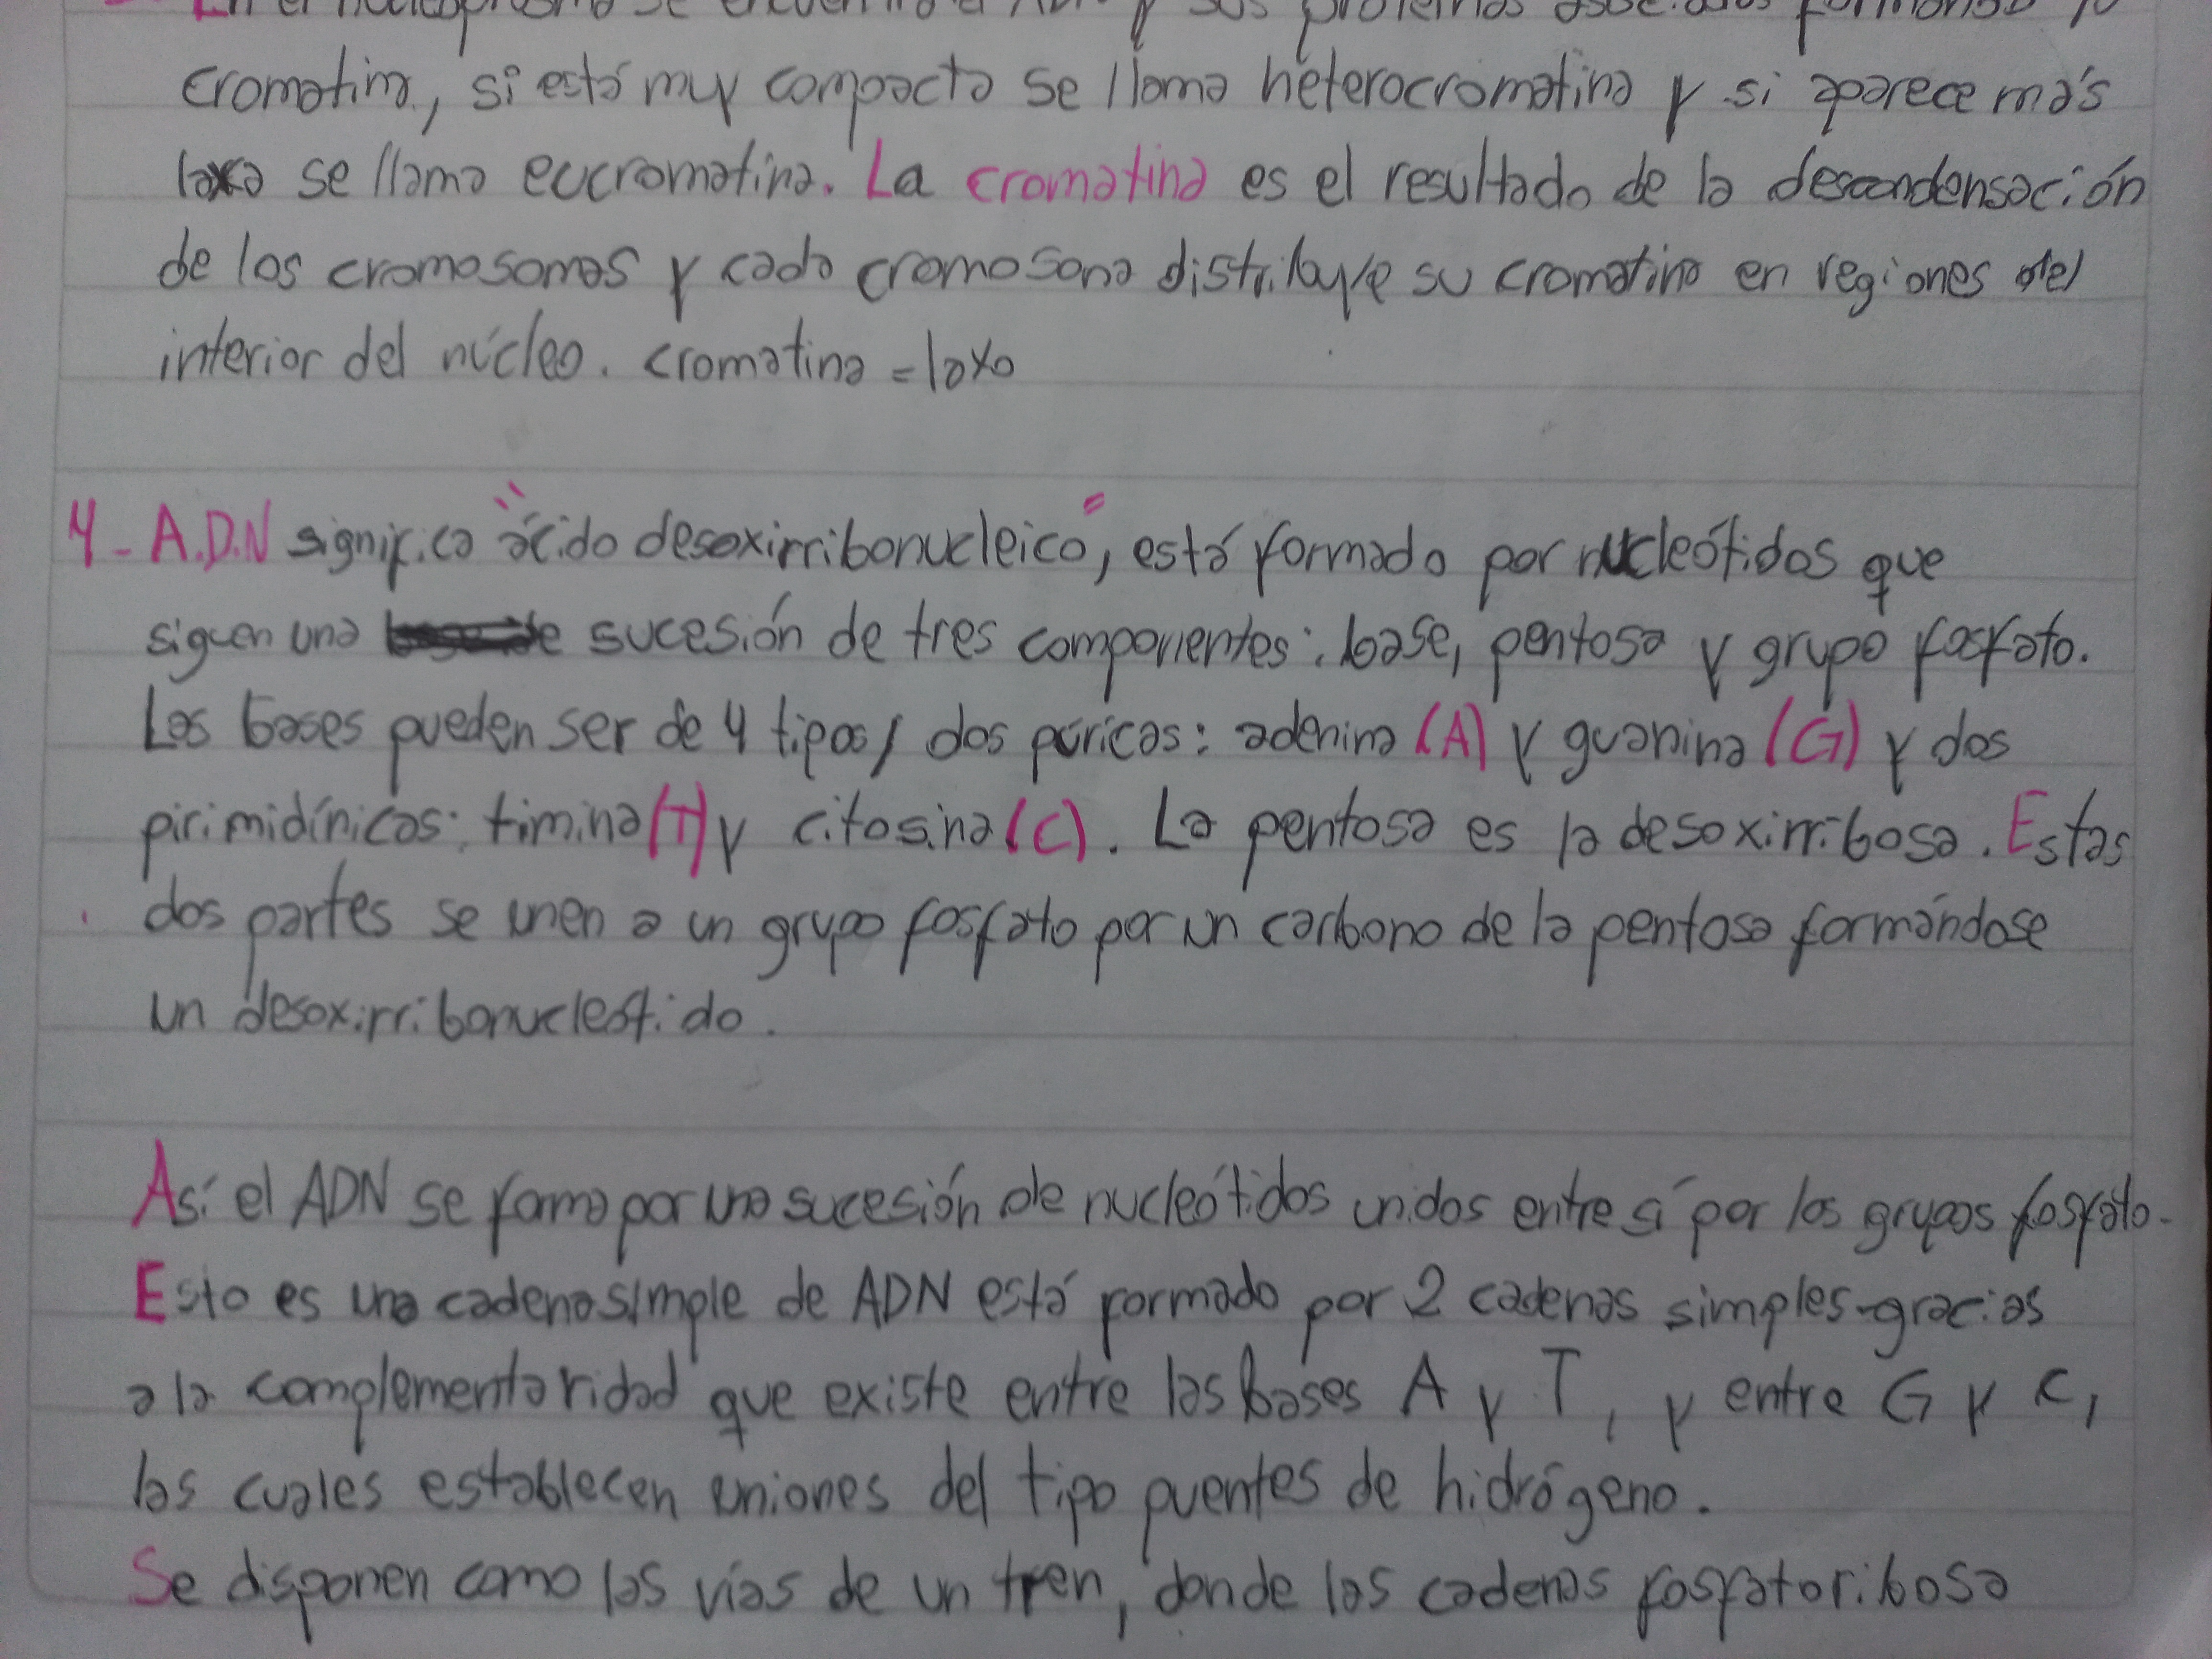 En el nucleoplasma se encuentra el ADN y sus proteínas asociadas formando la
cromatina, si está muy compacta se llama heterocromatina y si aparece más
laxa se llama eucromatina. La cromatina es el resultado de la descondensación
de los cromosomas y cada cromosoma distribuye su cromatina en regiones del
interior del núcleo. cromatina = laxo
4- A.D.N significa "ácido desoxirribonucleico", está formado por nucleótidos que
siguen una sucesión de tres componentes: base, pentosa y grupo fosfato.
Las bases pueden ser de 4 tipos, dos púricas: adenina (A) y guanina (G) y dos
pirimidínicas: timina (T) y citosina (C). La pentosa es la desoxirribosa. Estas
dos partes se unen a un grupo fosfato por un carbono de la pentosa formándose
un desoxirribonucleótido.
Así el ADN se forma por una sucesión de nucleótidos unidos entre sí por los grupos fosfato.
Esto es una cadena simple de ADN está formado por 2 cadenas simples gracias
a la complementaridad que existe entre las bases A y T, y entre G y C,
las cuales establecen uniones del tipo puentes de hidrógeno.
Se disponen como las vías de un tren, donde las cadenas fosfatoribosa